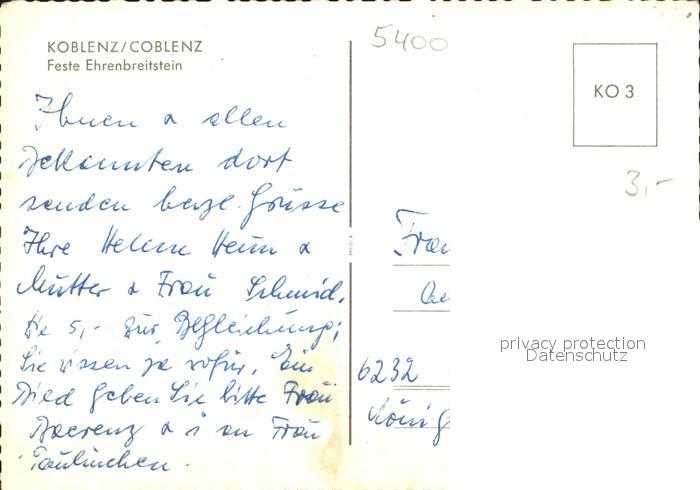 KOBLENZ/COBLENZ
Feste Ehrenbreitstein
5400
KO 3
3,-
Ihnen & allen
Bekannten dort
senden herzl. Grüsse
Ihre Helene Heun &
Mutter & Frau Schmid.
Die 5,- zur Begleichung;
Sie wissen ja wofür. Ein
Bild geben Sie bitte Frau
& 1 an Frau
Frau
6232
König
privacy protection
Datenschutz